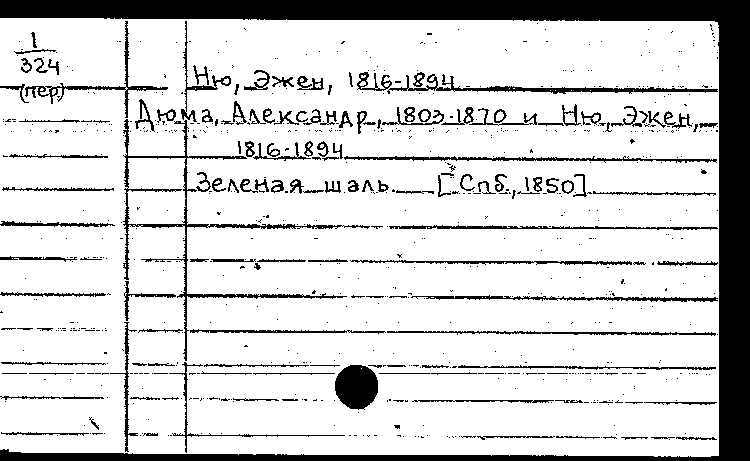 1
324
(пер)
Ню, Эжен, 1816-1894
Дюма, Александр, 1803-1870 и Ню, Эжен,
1816-1894
Зеленая шаль. [Спб., 1850]